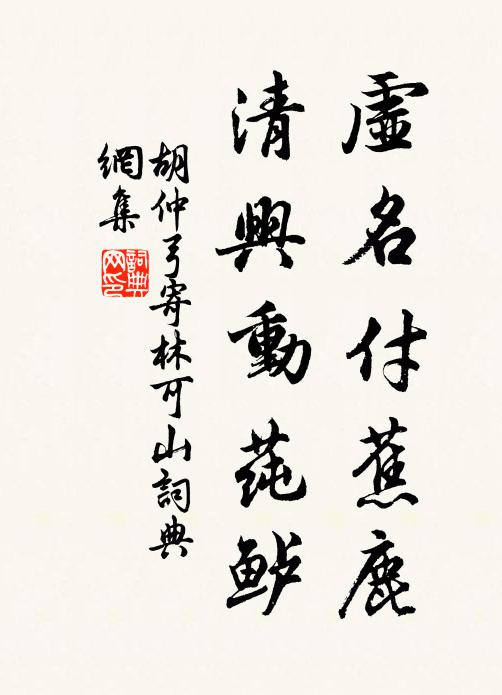 虛名付蕉鹿
清興動莼鲈
胡仲弓寄林可山詞典
網集
詞典网印